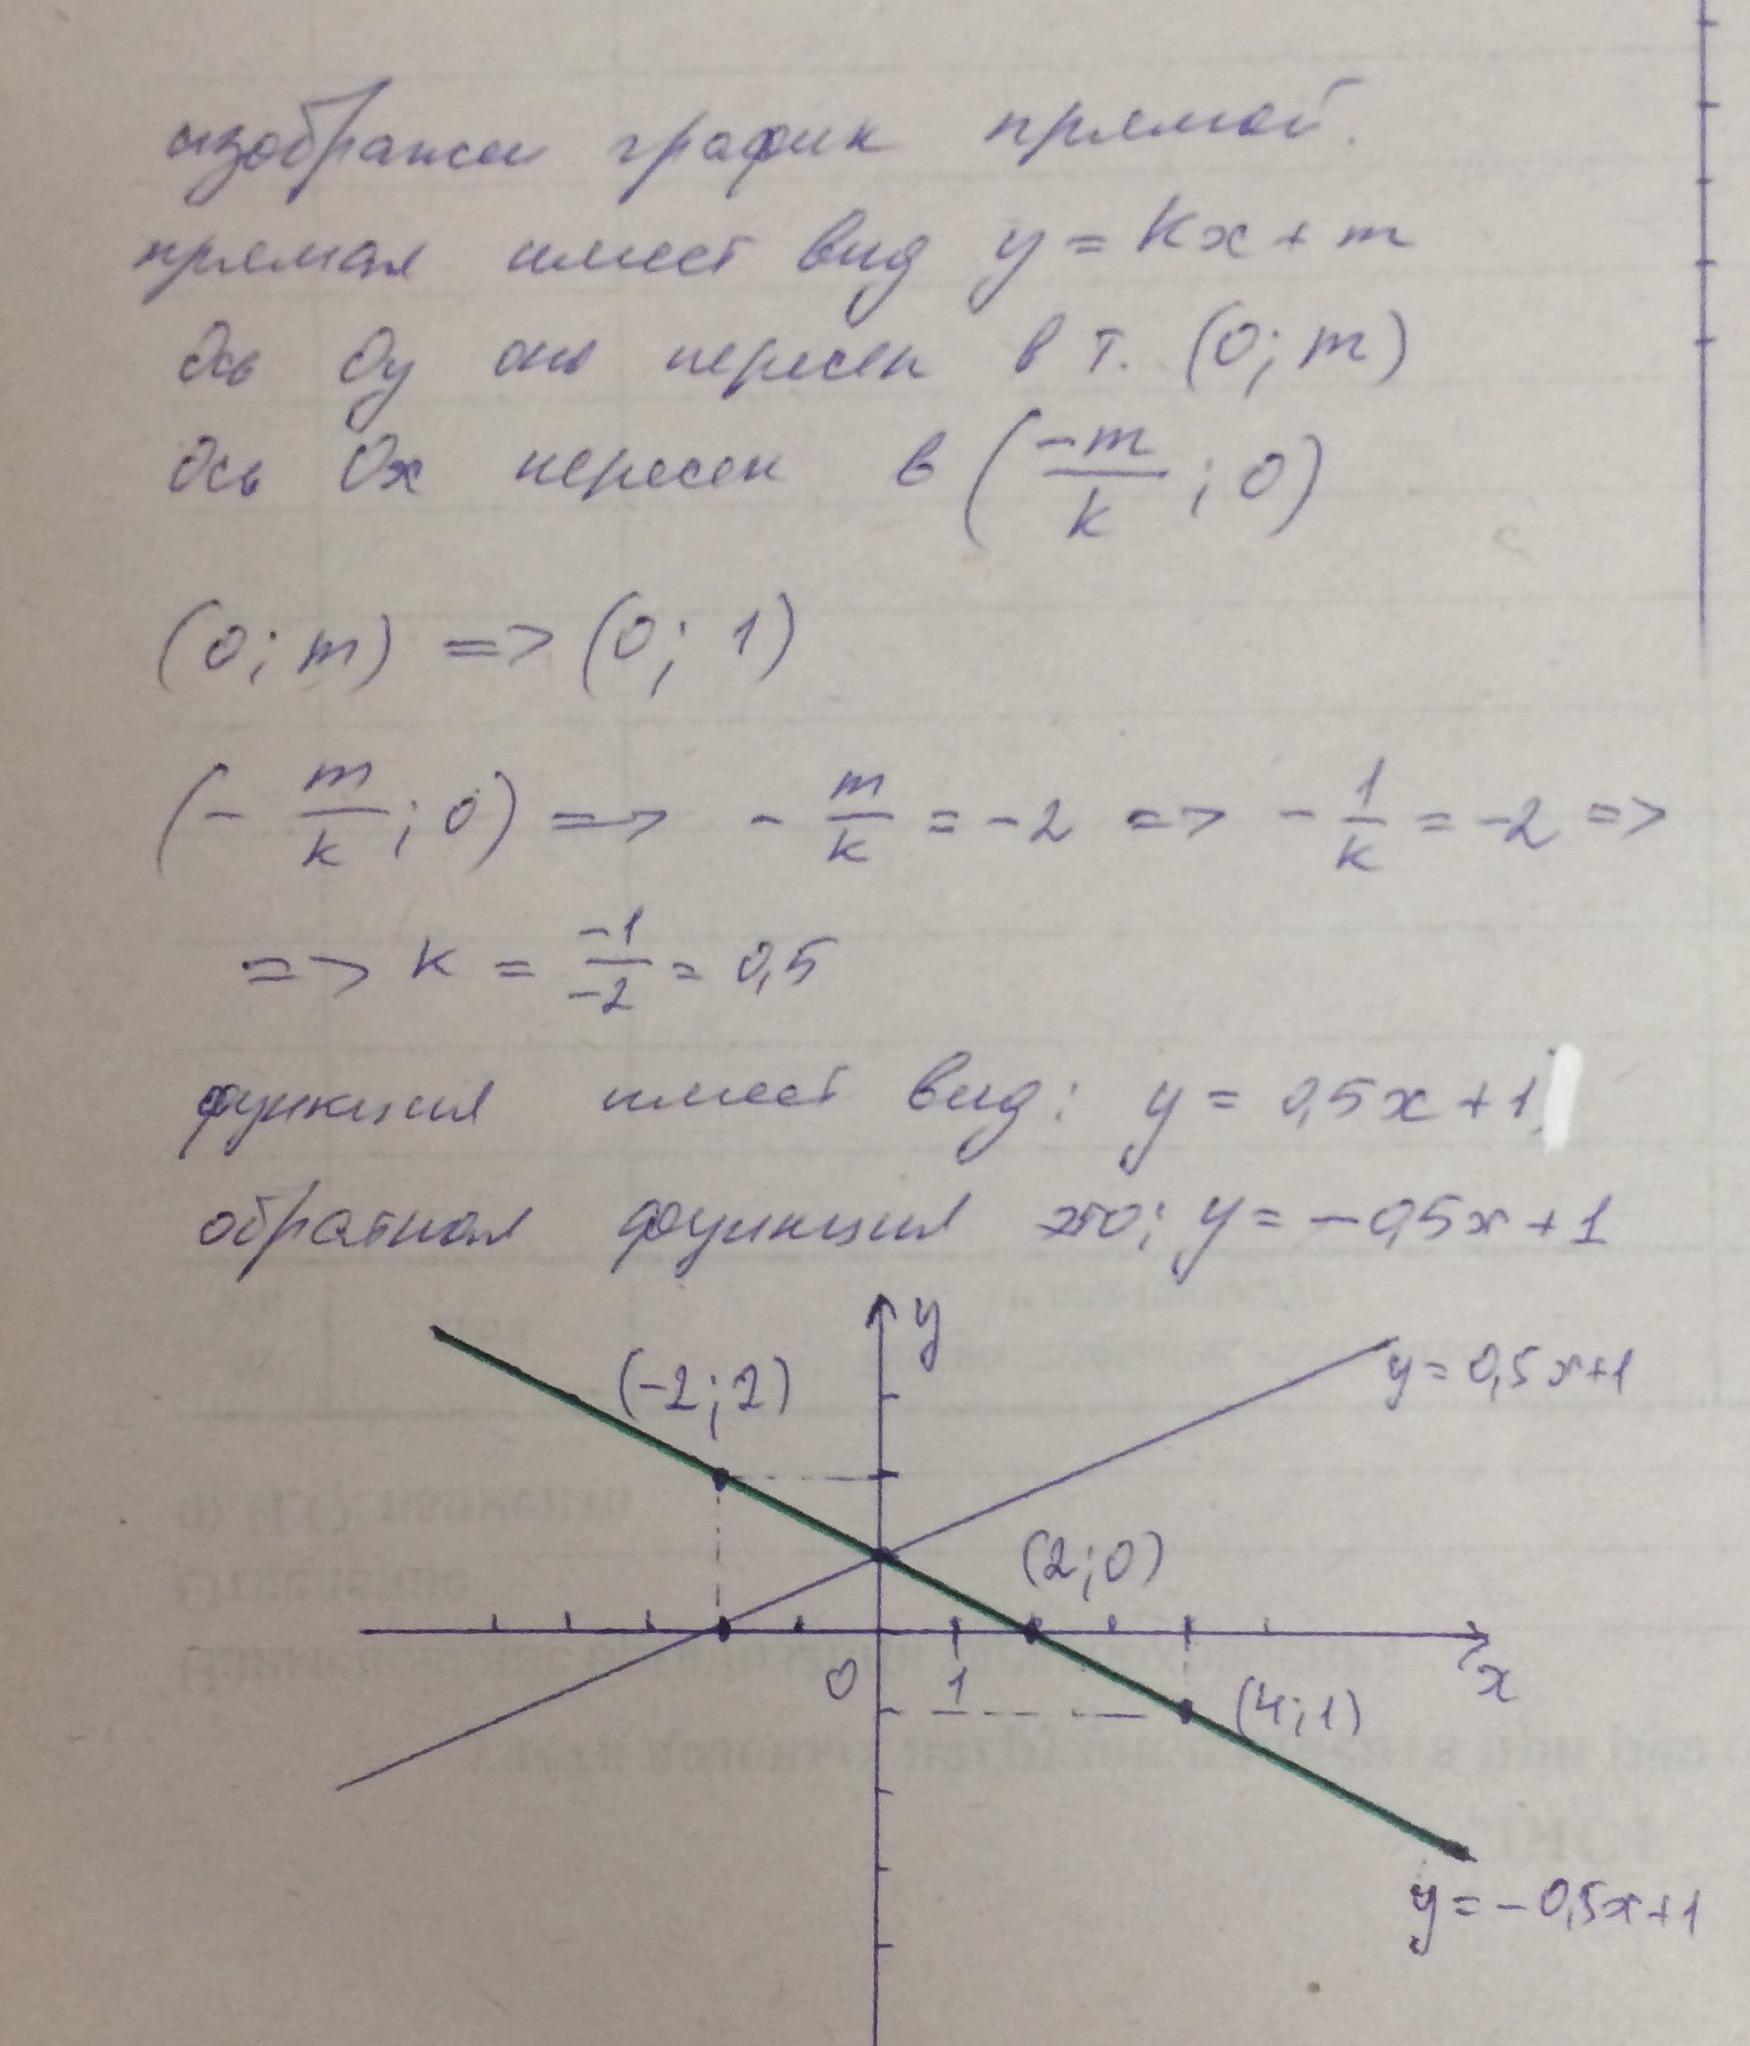 изображи график прямой.
прямая имеет вид y = kx + m
Ось Oy она пересек в т. (0; m)
Ось Ox пересек в (-m/k ; 0)
(0; m) => (0; 1)
(- m/k ; 0) => - m/k = -2 => - 1/k = -2 =>
=> k = -1/-2 = 0,5
функция имеет вид: y = 0,5x + 1
обратная функция это: y = -0,5x + 1
y
(-2; 2)
y = 0,5x+1
(2; 0)
0
1
x
(4; 1)
y = -0,5x+1